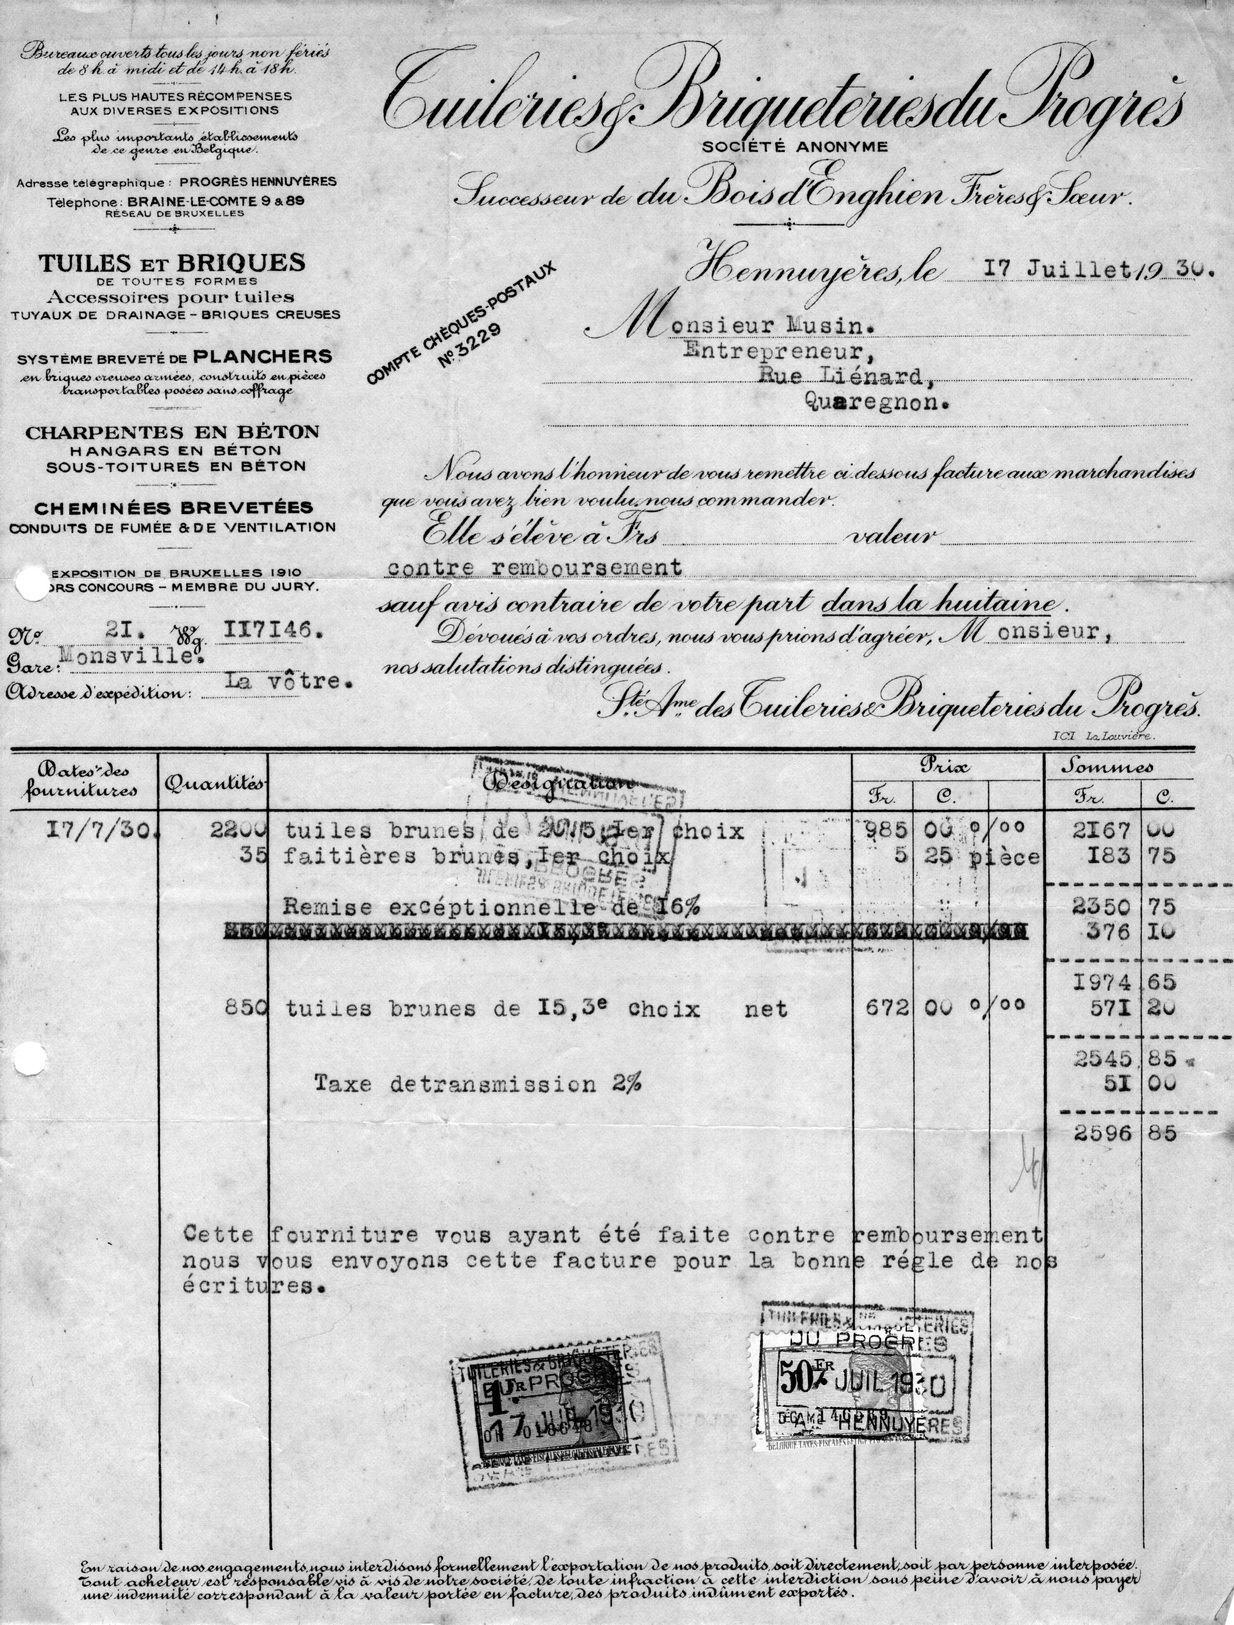 Bureaux ouverts tous les jours non fériés
de 8 h. à midi et de 14 h. à 18 h.
LES PLUS HAUTES RÉCOMPENSES
AUX DIVERSES EXPOSITIONS
Les plus importants établissements
de ce genre en Belgique.
Adresse télégraphique : PROGRÈS HENNUYÈRES
Téléphone : BRAINE-LE-COMTE 9 & 89
RÉSEAU DE BRUXELLES
TUILES ET BRIQUES
DE TOUTES FORMES
Accessoires pour tuiles
TUYAUX DE DRAINAGE - BRIQUES CREUSES
SYSTÈME BREVETÉ DE PLANCHERS
en briques creuses armées, construits en pièces
transportables posées sans coffrage
CHARPENTES EN BÉTON
HANGARS EN BÉTON
SOUS-TOITURES EN BÉTON
CHEMINÉES BREVETÉES
CONDUITS DE FUMÉE & DE VENTILATION
EXPOSITION DE BRUXELLES 1910
ORS CONCOURS - MEMBRE DU JURY.
No. 21. Wg. 117146.
Gare: Monsville.
Adresse d'expédition: La vôtre.
Tuileries & Briqueteries du Progrès
SOCIÉTÉ ANONYME
Successeur de du Bois d'Enghien Frères & Sœur.
COMPTE CHÈQUES-POSTAUX
No 3229
Hennuyères, le 17 Juillet 1930.
Monsieur Musin.
Entrepreneur,
Rue Liénard,
Quaregnon.
Nous avons l'honneur de vous remettre ci-dessous facture aux marchandises
que vous avez bien voulu nous commander.
Elle s'élève à Frs valeur
contre remboursement
sauf avis contraire de votre part dans la huitaine.
Dévoués à vos ordres, nous vous prions d'agréer, Monsieur,
nos salutations distinguées.
Sté Ame des Tuileries & Briqueteries du Progrès.
ICI La Louvière.
Dates des fournitures Quantités Désignation Prix Sommes
Fr. C. Fr. C.
17/7/30. 2200 tuiles brunes de 20/15, 1er choix 985 00 o/oo 2167 00
35 faitières brunes, 1er choix 5 25 pièce 183 75
Remise excéptionnelle de 16% 2350 75
376 10
1974 65
850 tuiles brunes de 15,3e choix net 672 00 o/oo 571 20
2545 85
Taxe detransmission 2% 51 00
2596 85
Cette fourniture vous ayant été faite contre remboursement
nous vous envoyons cette facture pour la bonne régle de nos
écritures.
TUILERIES & BRIQUETERIES
DU PROGRÈS
1 Fr
17 JUIL 1930
TUILERIES & BRIQUETERIES
DU PROGRES
50c FR JUIL 1930
HENNUYÈRES
En raison de nos engagements, nous interdisons formellement l'exportation de nos produits, soit directement, soit par personne interposée.
Tout acheteur est responsable vis à vis de notre société, de toute infraction à cette interdiction sous peine d'avoir à nous payer
une indemnité correspondant à la valeur portée en facture, des produits indûment exportés.